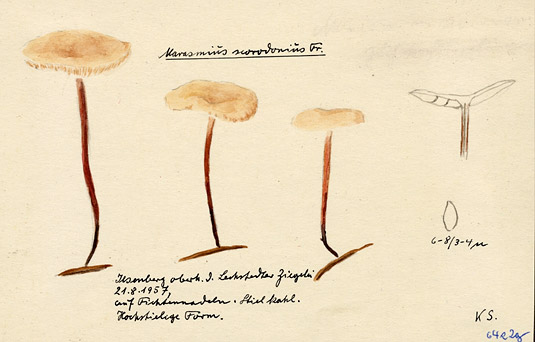 Marasmius scorodonius Fr.
6-8/3-4 µ
Ilsenberg oberh. d.
21.8.1957,
auf Fichtennadeln. Stiel kahl.
Hochstielige Form.
KS.